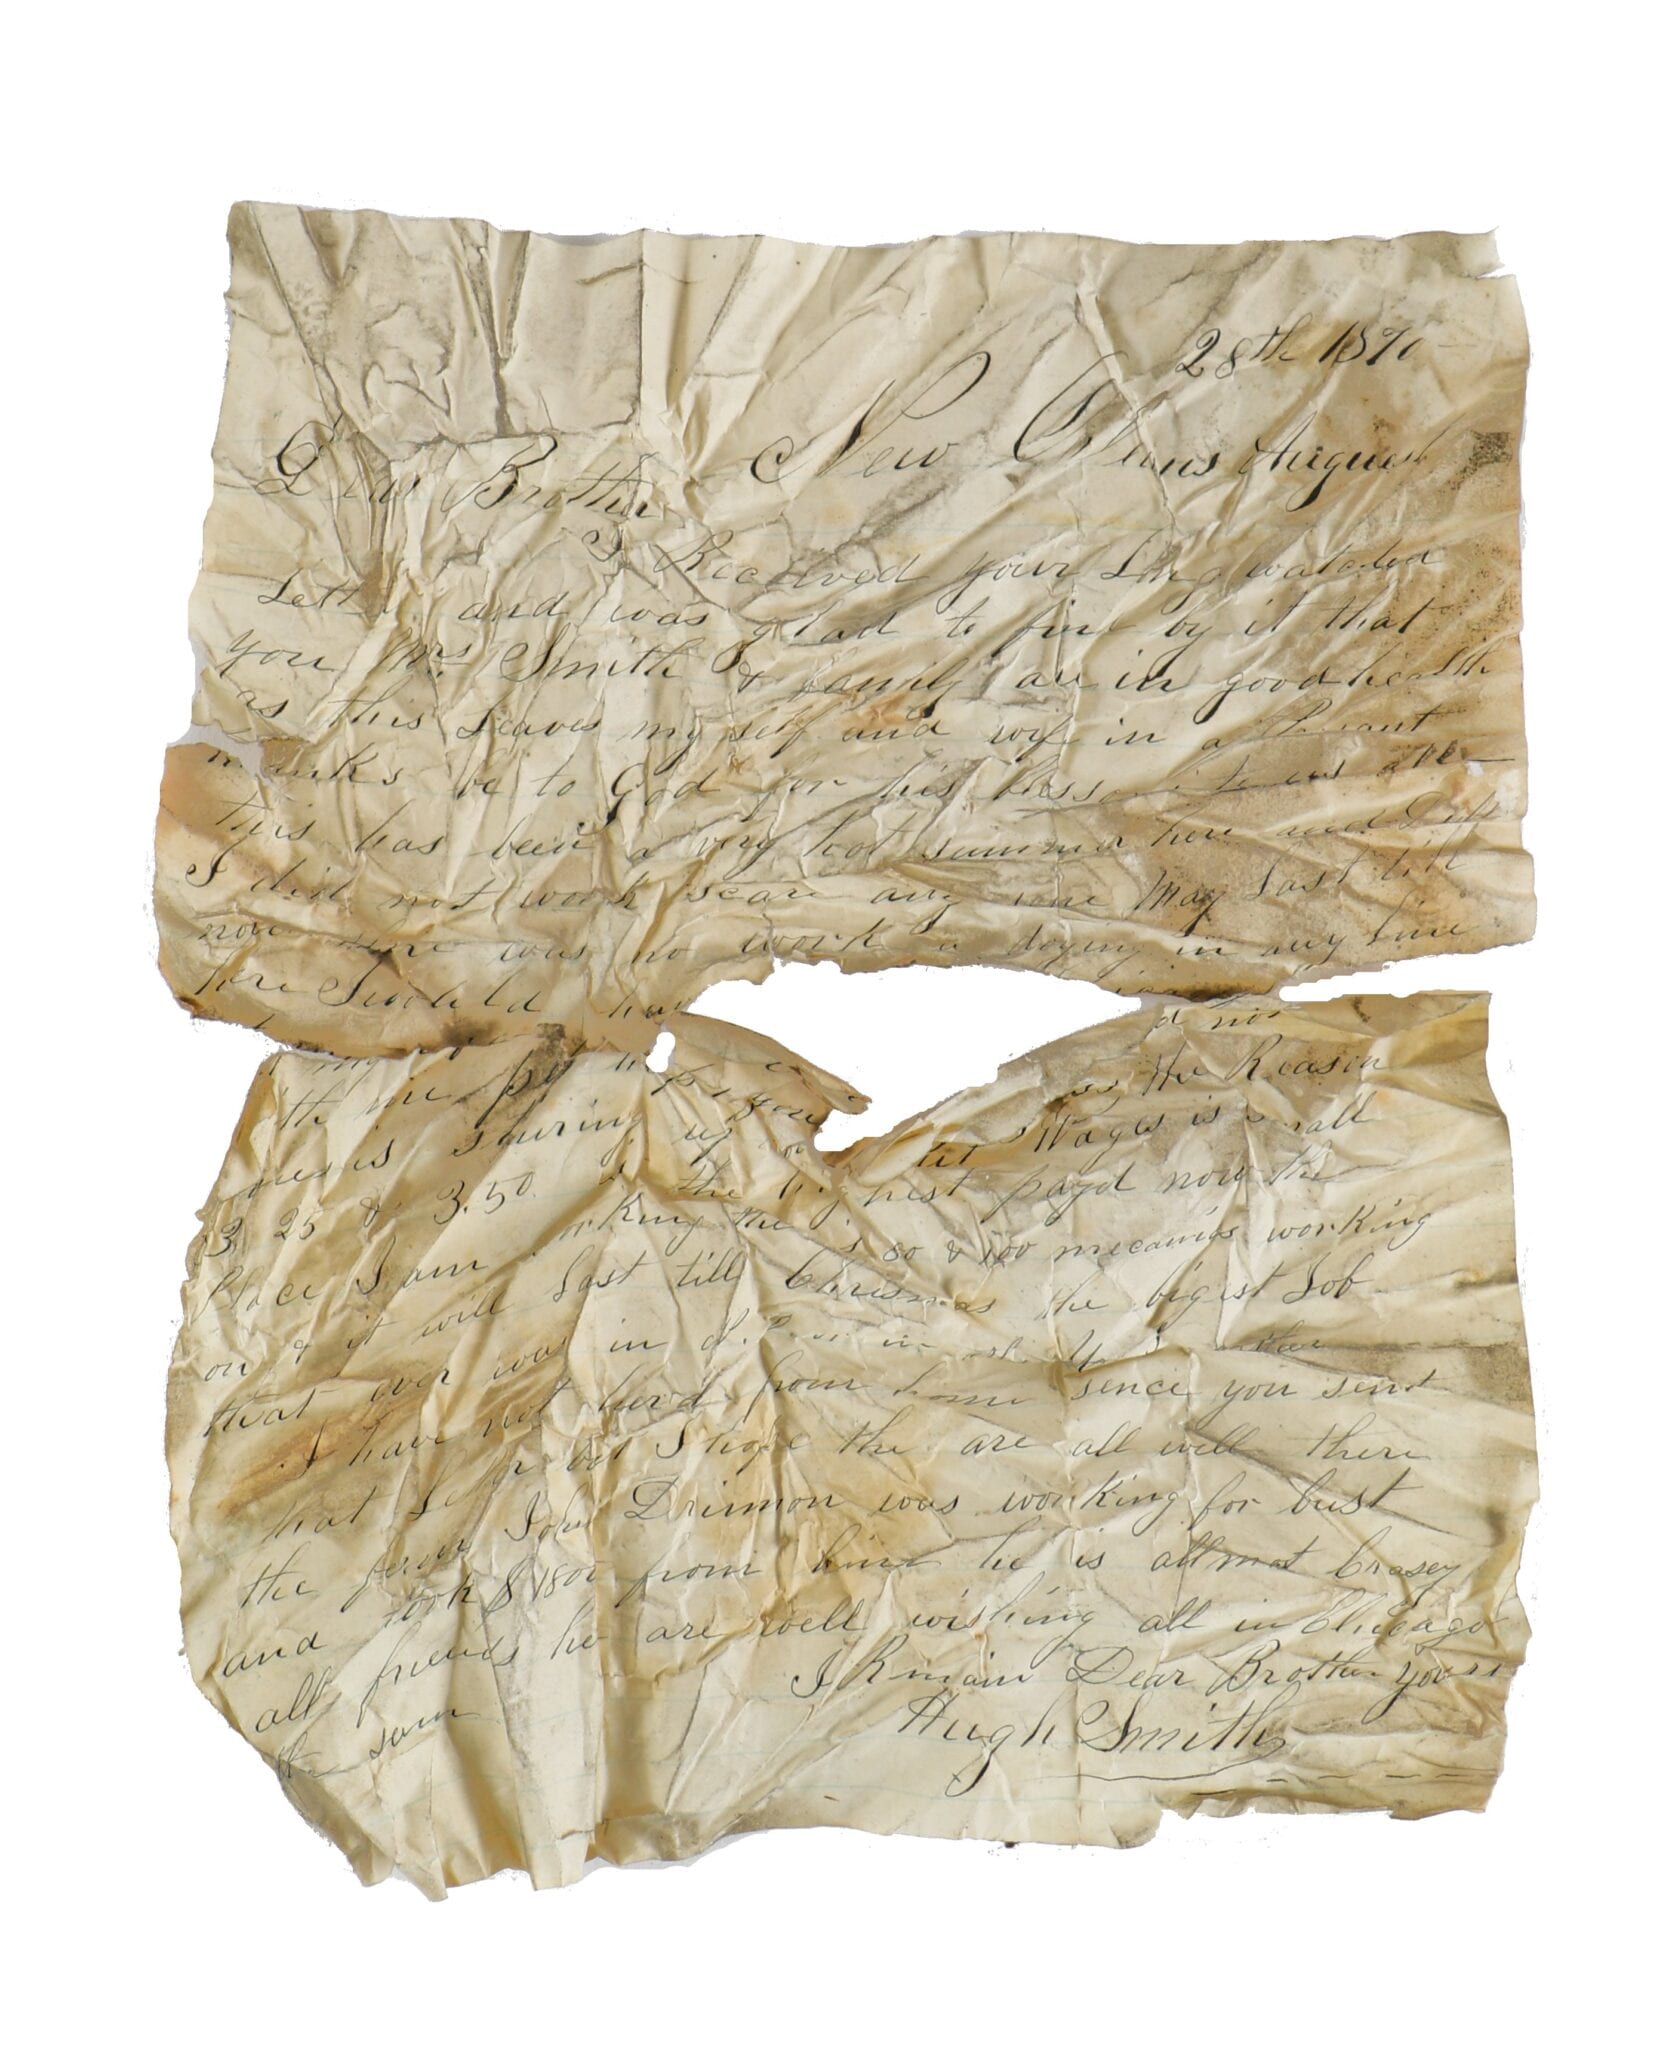 28th 1890
New Orleans August
Dear Brother
I Received your Long watched
Letter and was glad to fine by it that
you Mrs Smith & family are in good health
as this Leaves my self and wife in a
thanks be to God for his to us all
this has been a very hot summer here and
I did not work scare any sine May Last till
now there was no work a doying in my line
here I would have
d not
the me the Reason
is sturing up but Wages is small
3.25 & 3.50 is the highest payd now the
Place I am working the is 80 & 100 mecanics working
on & it will Last till Chrismas the bigest Job
that ever was in
I have not herd from home sence you sent
that Letter but I hope the are all well there
the John Drinnon was working for bust
and took $1800 from him he is allmost Crasey
all friends hir are well wishing all in Chicago
the same I Remain Dear Brother yours
Hugh Smith